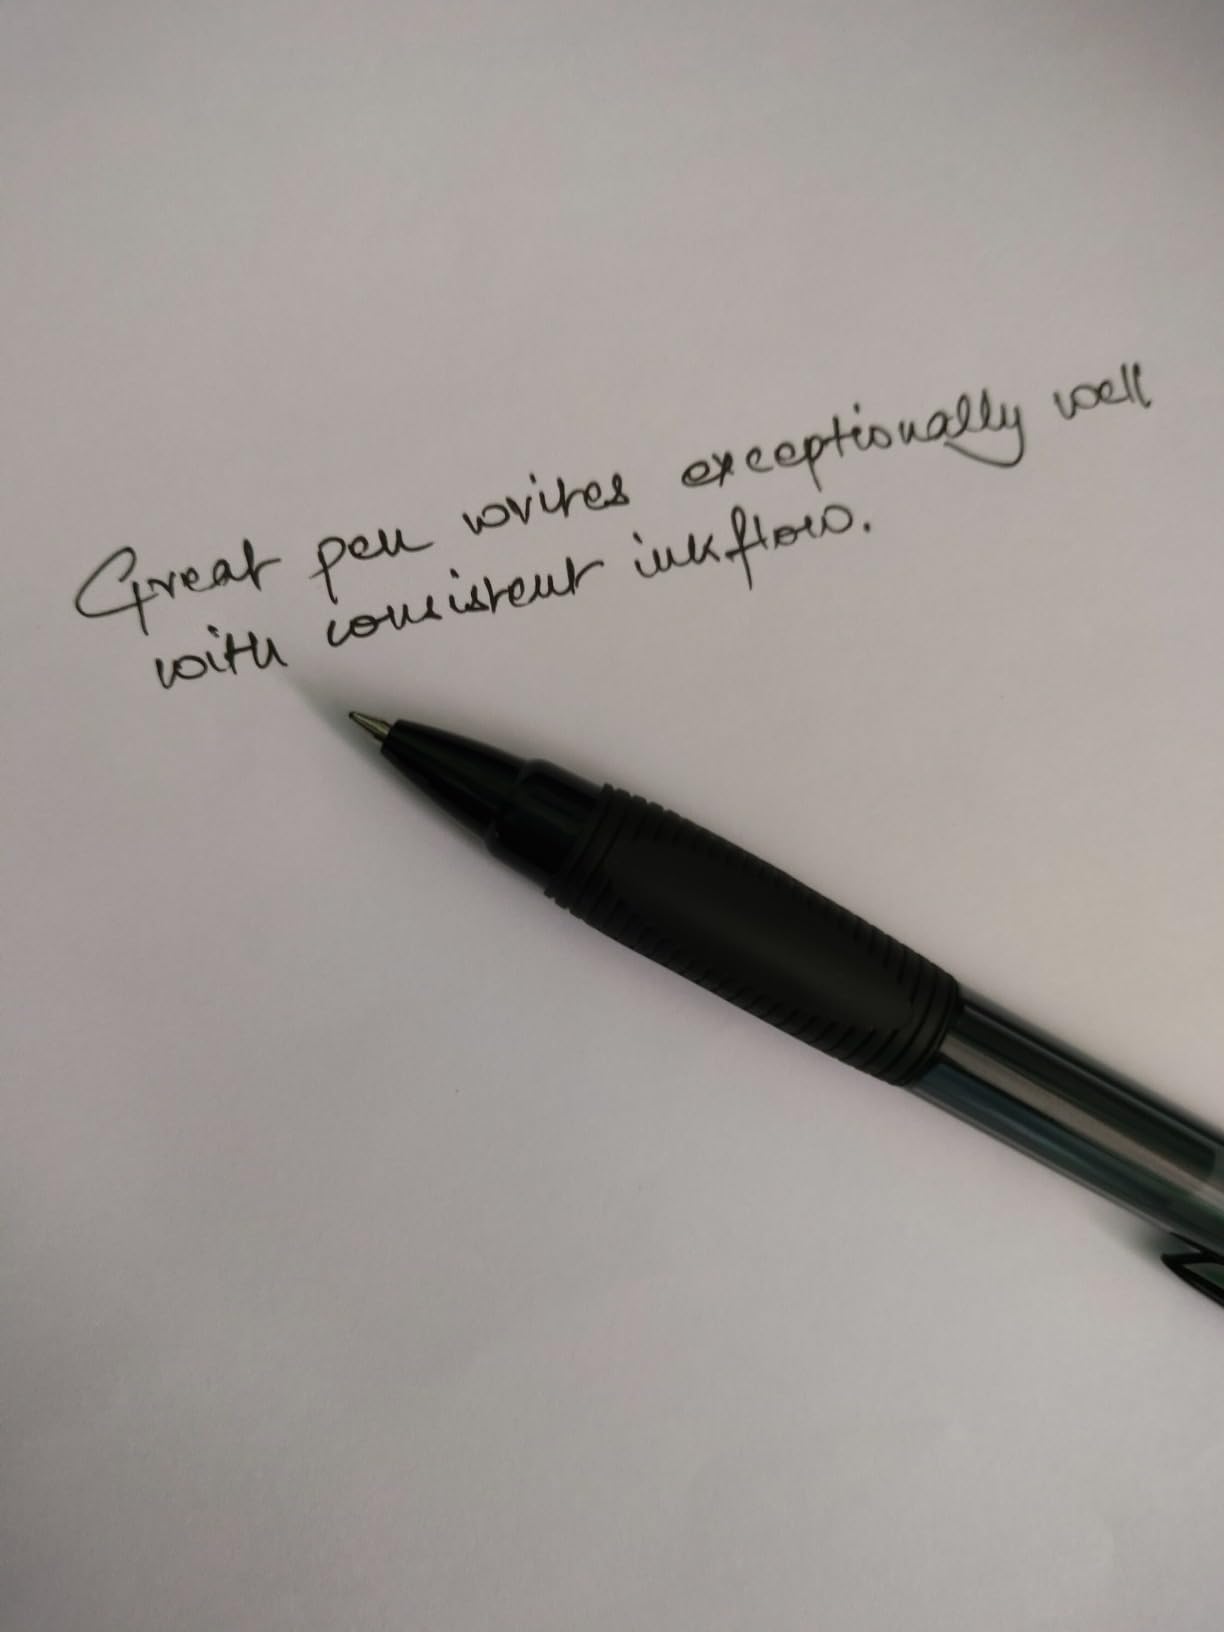 Great pen writes exceptionally well
with consistent inkflow.